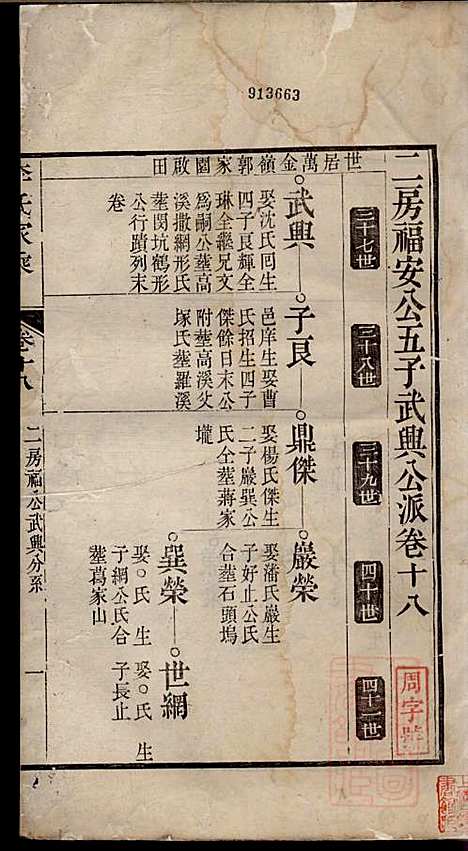 913663
二房福安公五子武興公派卷十八
三十七世
三十八世
三十九世
四十世
四十一世
周字號
世居萬金嶺郭家園啟田
武興
娶沈氏囘生
四子良輝全
琳全繼兄文
為嗣公塟高
溪撒網形氏
塟閔坑鶴形
公行蹟列末
卷
子良
邑庠生娶曹
氏招生四子
傑餘日末公
附塟高溪父
塚氏塟羅溪
鼎傑
娶楊氏傑生
二子巖巽公
氏仝塟蔣家
壠
巖榮
娶潘氏巖生
子好止公氏
合塟石頭塢
巽榮
娶○氏生
子網公氏合
塟葛家山
世網
娶○氏生
子長止
李氏家乘
卷十八
二房福公武興分系
一